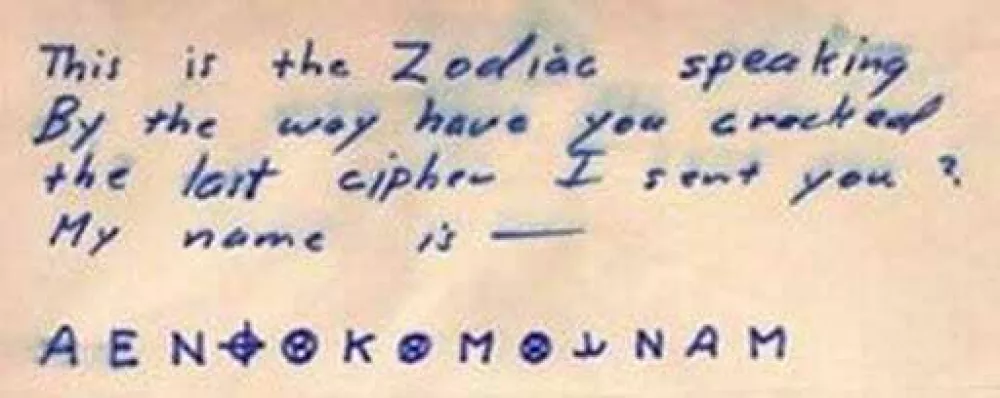 This is the Zodiac speaking
By the way have you cracked
the last cipher I sent you?
My name is —
A E N ⌖ ⊗ K ⊗ M ⊗ ⅄ N A M